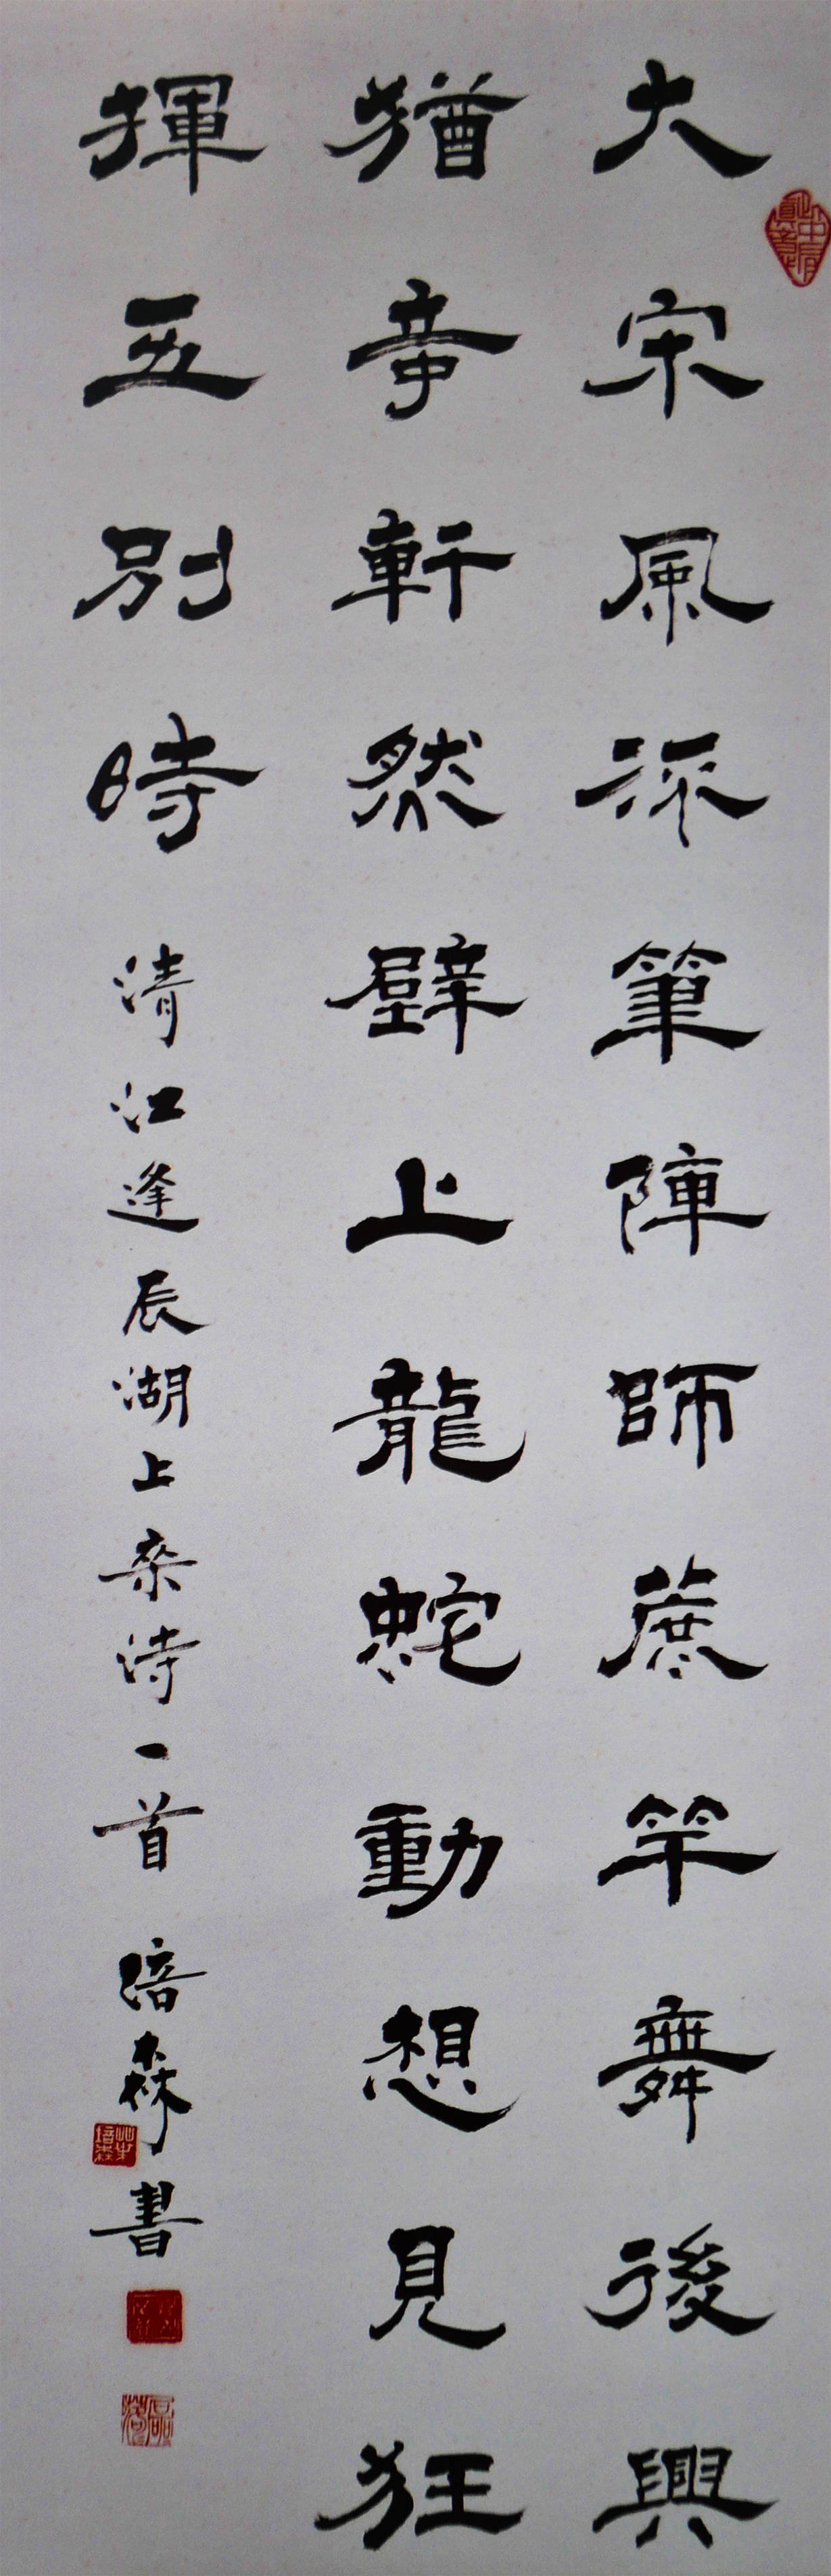 大宋風流筆陣師蔗竿舞後興
猶竒軒然壁上龍蛇動想見狂
揮五別時 清江逢辰湖上杂詩一首 培森書